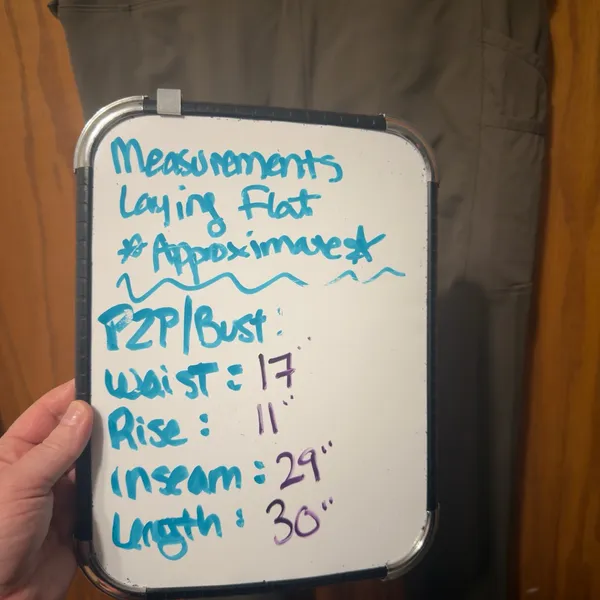 Measurements
Laying Flat
*Approximate*
P2P/Bust:
Waist: 17"
Rise: 11"
inseam: 29"
Length: 30"